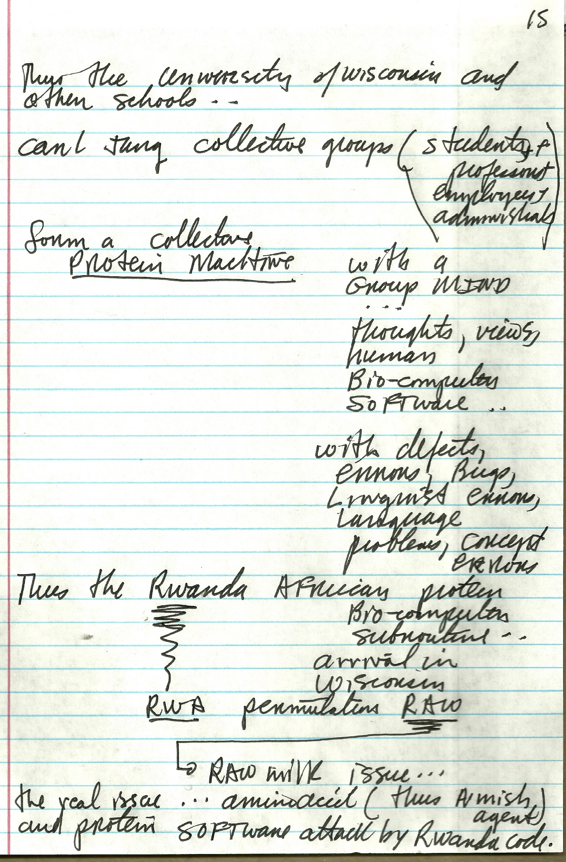 15
Thus the university of wisconsin and
other schools ..
carl Jung collective groups ( students +
professors
employees +
administrators )
form a collective
Protein Machine
with a
Group MIND
...
thoughts, views,
human
Bio-computer
SOFTware ..
with defects,
errors, Bugs,
Linguist errors,
Language
problems, concept
errors
Thus the Rwanda African protein
Bio-computer
subroutine ..
arrival in
Wisconsin
RWA permutation RAW
RAW milk issue ...
the real issue ... amino acid ( thus Amish
agent)
and protein SOFTware attack by Rwanda code.